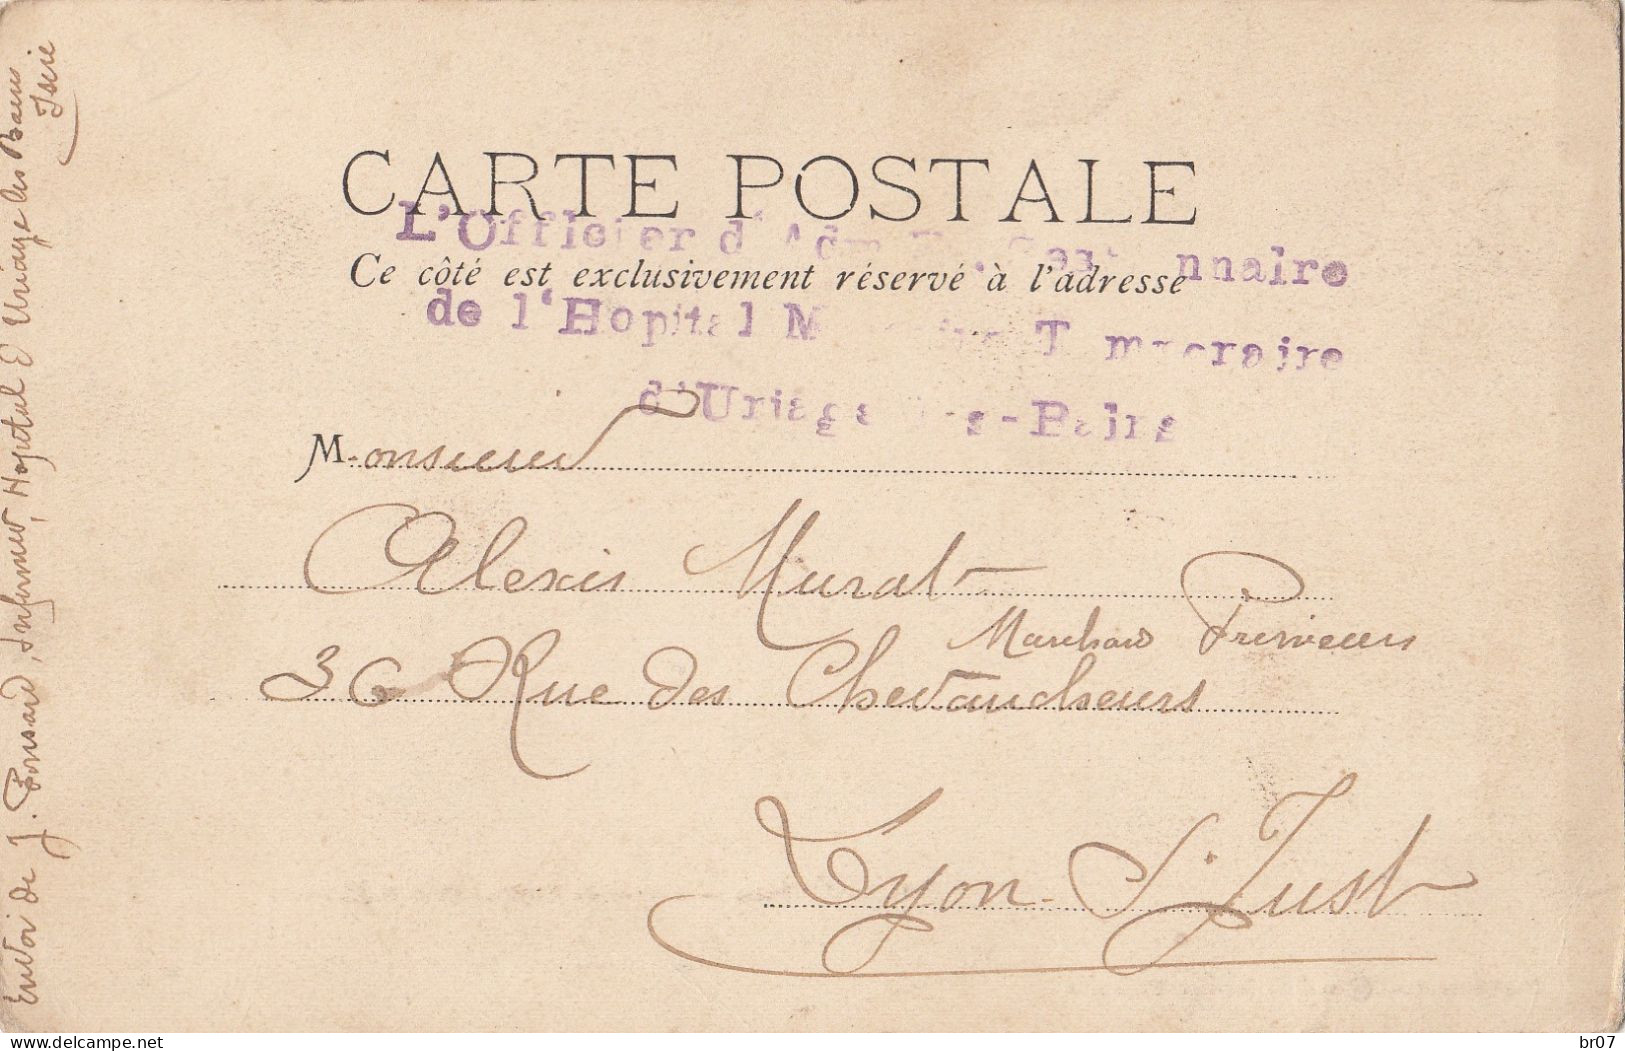 CARTE POSTALE
L'Officier d'Adm nnaire
Ce côté est exclusivement réservé à l'adresse
de l'Hopital M T mporaire
d'Uriage les-Bains
Monsieur
Alexis Murat
Marchand Primeurs
36 Rue des Chevaucheurs
Lyon-St Just
Envoi de J. Ponsard, Infirmier, Hopital D'Uriage les Bains
Isère
delcampe.net
br07